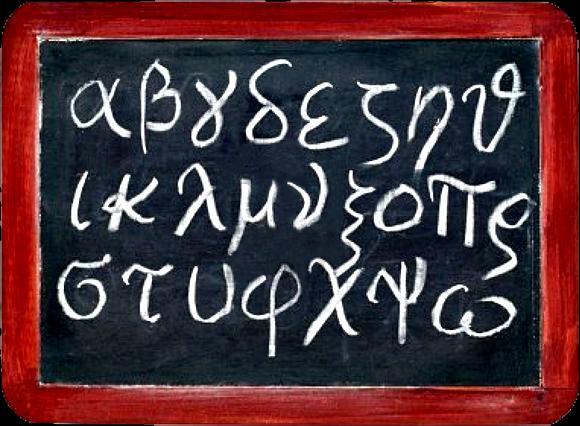 αβγδεζηϑ
ικλμνξοπρ
στυφχψω